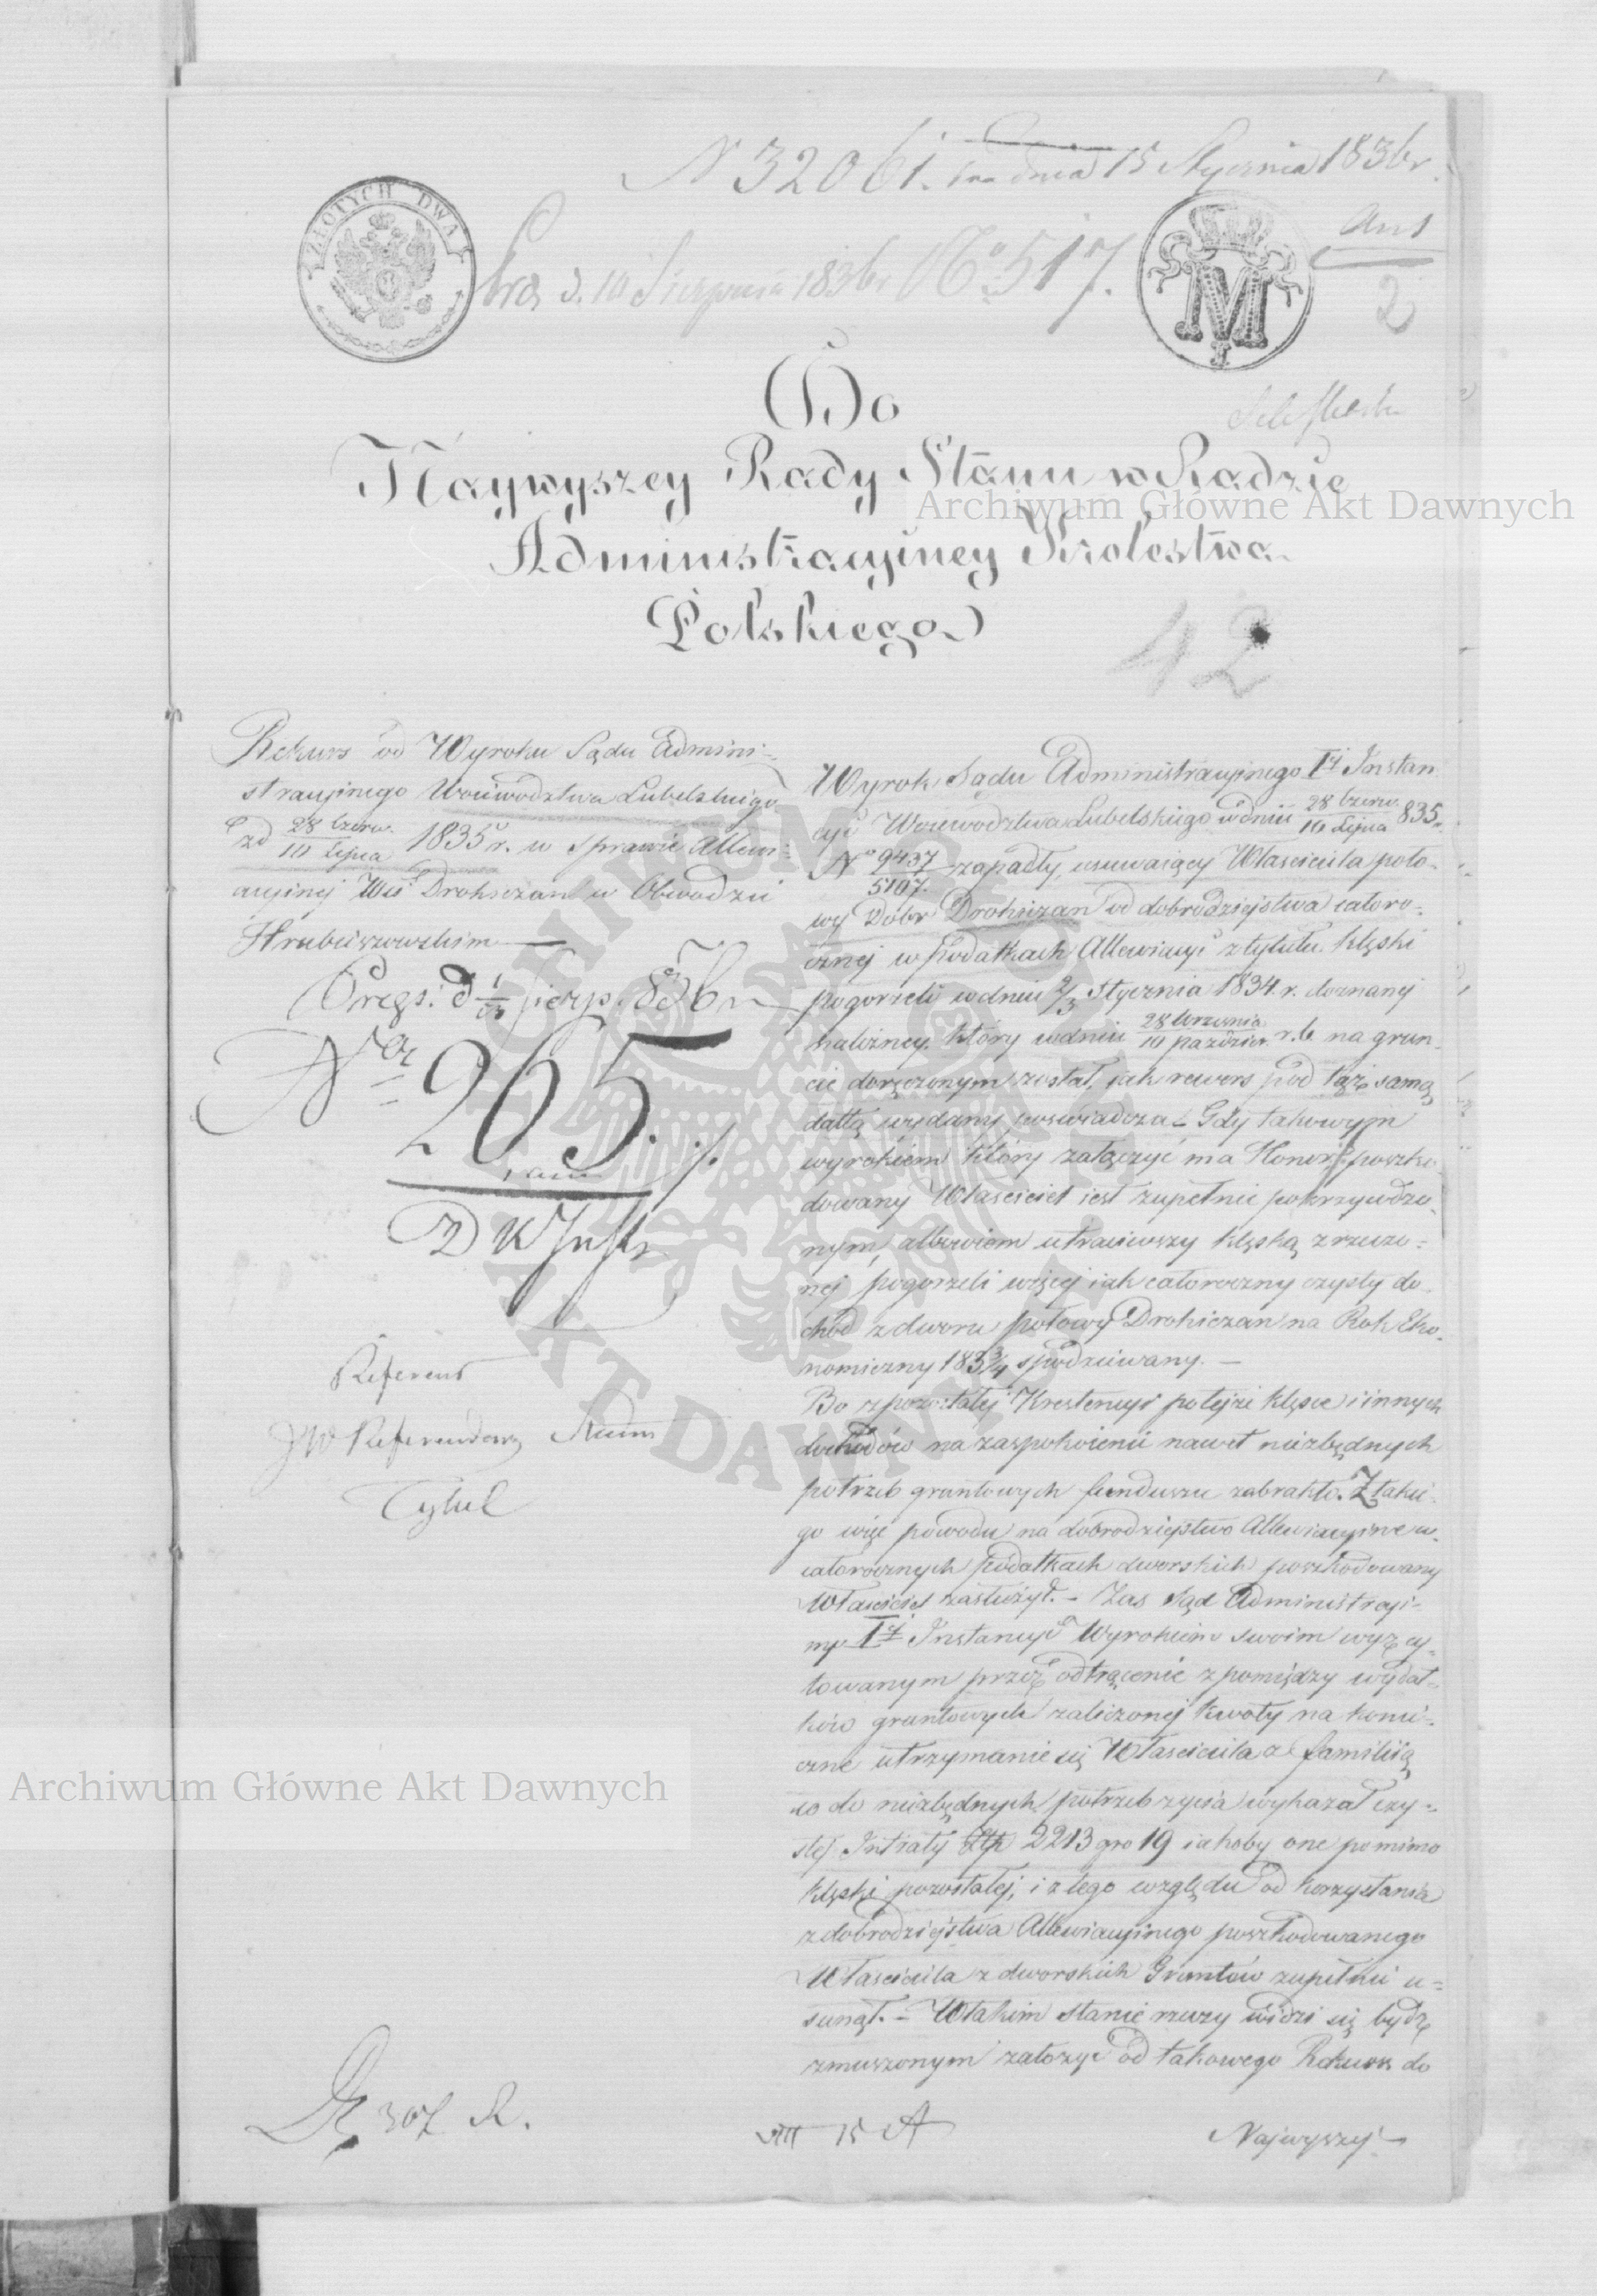 N 32061. dnia 15 Stycznia 1836 r.
ZŁOTYCH DWA
d. 10 Sierpnia 1836 r No 517.
M
2
Do
Naywyszey Rady Stanu w Radzie
Administracyiney Krolestwa
Polskiego
42
Rekurs od Wyroku Sądu Admini-
stracyinego Woiewodztwa Lubelskiego
zd 28 Czerw. / 10 Lipca 1835 r. w sprawie Allewi-
acyinej Wsi Drohiczan w Obwodzie
Hrubieszowskim —
Nr 265.
Referent
JW Referendarz Stanu
Tykel
Wyrok Sądu Administracyinego Iej Instan
cyi Woiewodztwa Lubelskiego w dniu 28 Czerw. / 10 Lipca 835.
No 9437 / 5107. zapadły, usuwaiący Właściciela poło-
wy Dobr Drohiczan od dobrodzieystwa całoro-
cznej w podatkach Allewiacyi z tytułu klęski
pogorzeli w dniu 2/3 Stycznia 1834 r. doznanej
należney. który w dniu 28 Września / 10 Paździer. r. b. na grun-
cie doręczonym został, jak rewers pod tąże samą
dattą wydany poswiadcza – Gdy takowym
wyrokiem który załączyć ma Honor, poszko
dowany Właściciel iest zupełnie pokrzywdzo-
nym, albowiem utraciwszy klęską zrzczo-
nej pogorzeli więcej iak całoroczny czysty do-
chód z dworu połowy Drohiczan na Rok Eko-
nomiczny 183 3/4 spodziewany. —
Bo z pozostałej Krestencyi po tejże klęsce i innych
dochodów na zaspokoienie nawet niezbędnych
potrzeb gruntowych funduszu zabrakło. Z takie-
go więc powodu na dobrodziejstwo Allewiacyine w
całorocznych podatkach dworskich poszkodowany
Właściciel zasłużył. – Zas Sąd Administracyi-
ny Iej Instancyi Wyrokiem swoim wyżey cy-
towanym przez odtrącenie z pomiędzy wydat-
ków gruntowych zaliczonej kwoty na konie-
czne utrzymanie się Właściciela z familiią
co do niezbędnych potrzeb życia wykazał czy-
stej Intraty Złp 2213 gro 19 iakoby one pomimo
klęski pozostałej, i z tego względu od korzystania
z dobrodziejstwa Allewiacyinego poszkodowanego
Właściciela z dworskich Gruntów zupełnie u-
sunął. – W takim stanie rzeczy widzi się bydź
zmuszonym założyć od takowego Rekurs do
Najwyszej
15 A
Archiwum Główne Akt Dawnych
Archiwum Główne Akt Dawnych